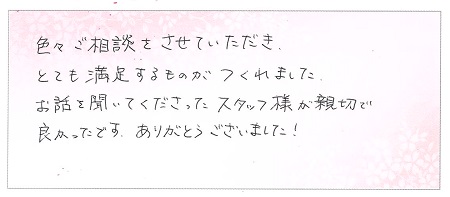 色々ご相談をさせていただき、
とても満足するものがつくれました。
お話を聞いてくださったスタッフ様が親切で
良かったです。ありがとうございました!